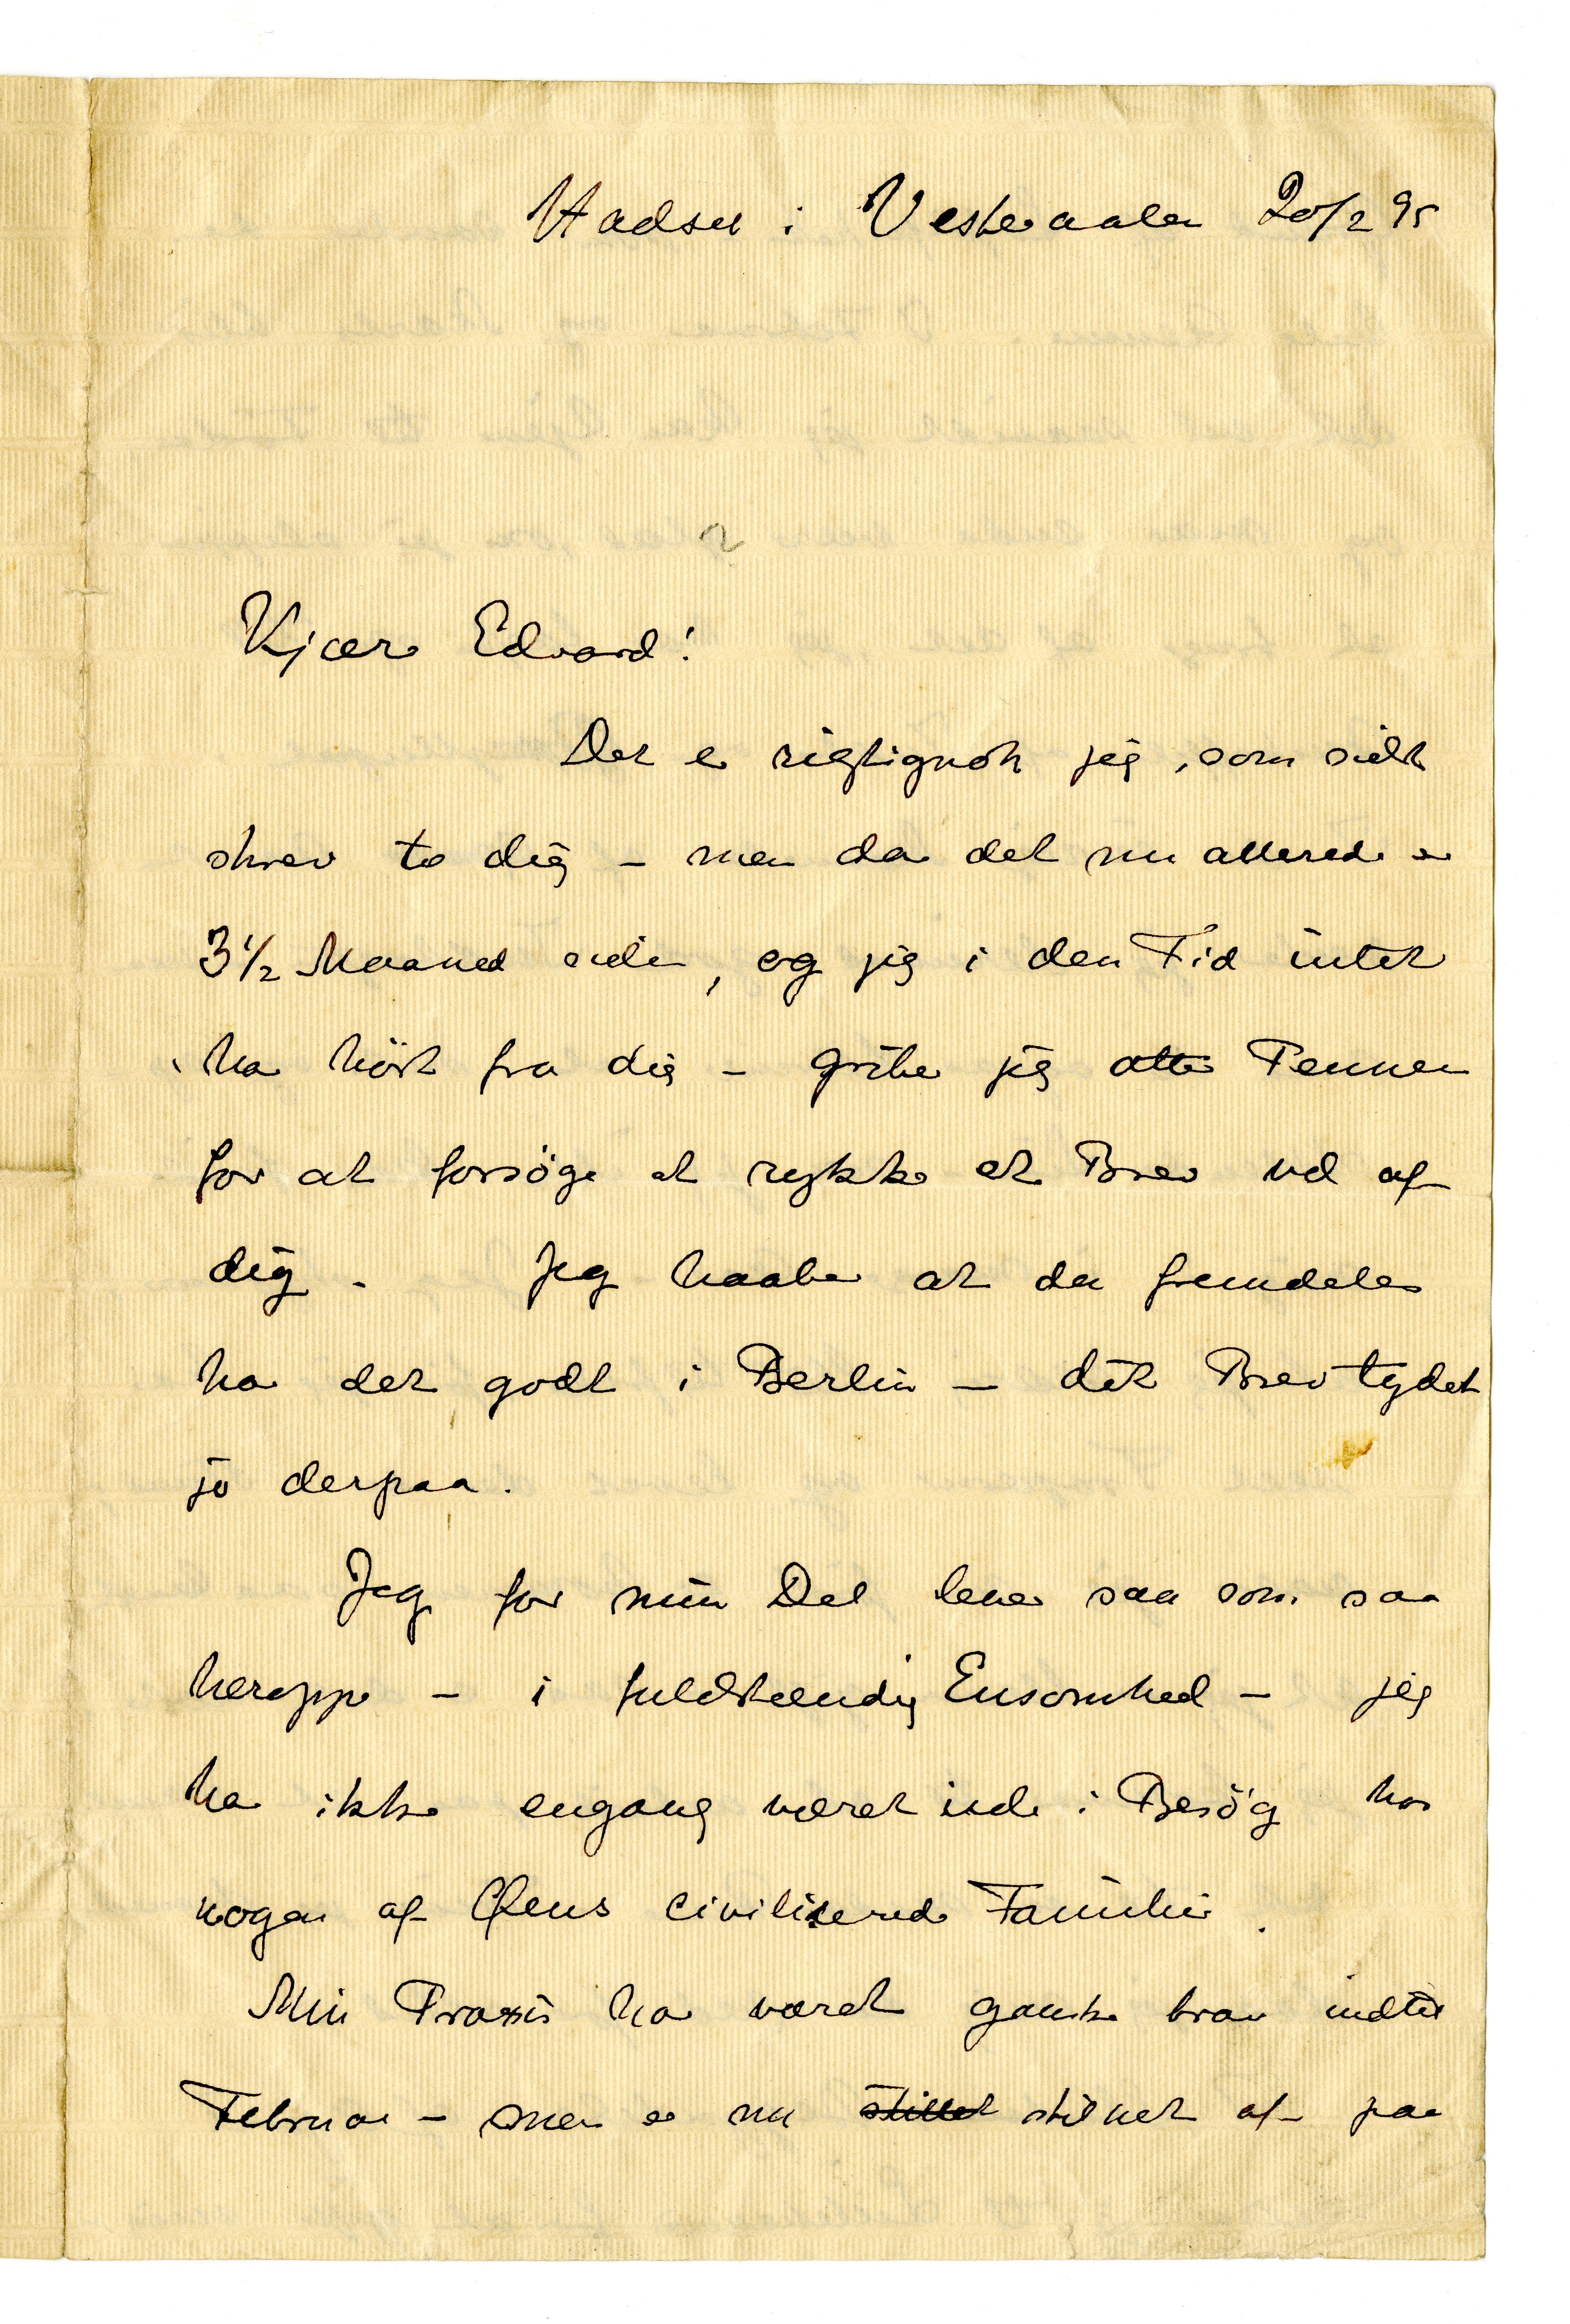 Hadsel i Vesteraalen 20/2 95
Kjære Edvard!
Det er rigtignok jeg, som sidst
skrev to dig – men da det nu allerede er
3 1/2 Maaned siden, og jeg i den Tid intet
har hört fra dig – griber jeg atter Pennen
for at forsöge at rykke et Brev ud af
dig. Jeg haaber at du fremdeles
har det godt i Berlin – dit Brev tydet
jo derpaa.
Jeg for min Del lever saa som saa
heroppe – i fuldstændig Ensomhed – jeg
har ikke engang været inde i Besög hos
nogen af Öens civiliserede Familier.
Min Praxis har været ganske brav indtil
Februar – men er nu stillet stilnet af paa